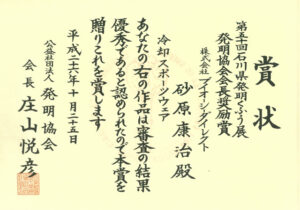 賞状
第五十石川県発明くふう展
発明協会会長奨励賞
株式会社ブイオーシーダイレクト
砂原康治殿
冷却スポーツウェア
あなたの右の作品は審査の結果
優秀であると認められたので本賞を
贈りこれを賞します
平成二十六年十月二十五日
公益社団法人発明協会
会長庄山悦彦